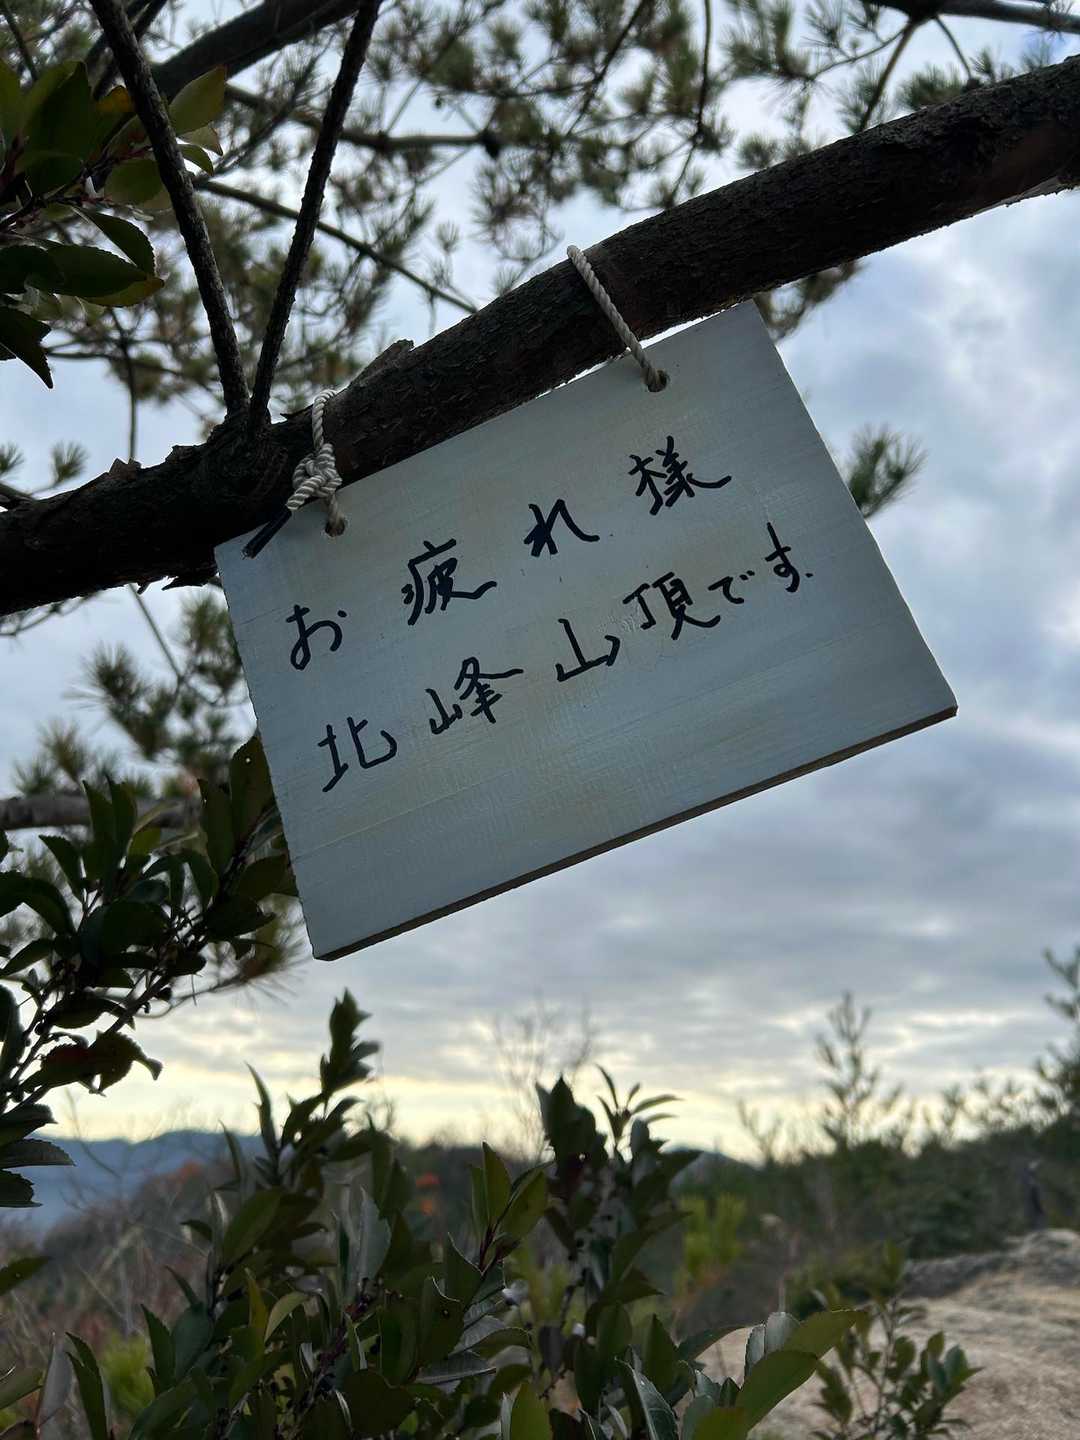 お疲れ様
北峰山頂です.